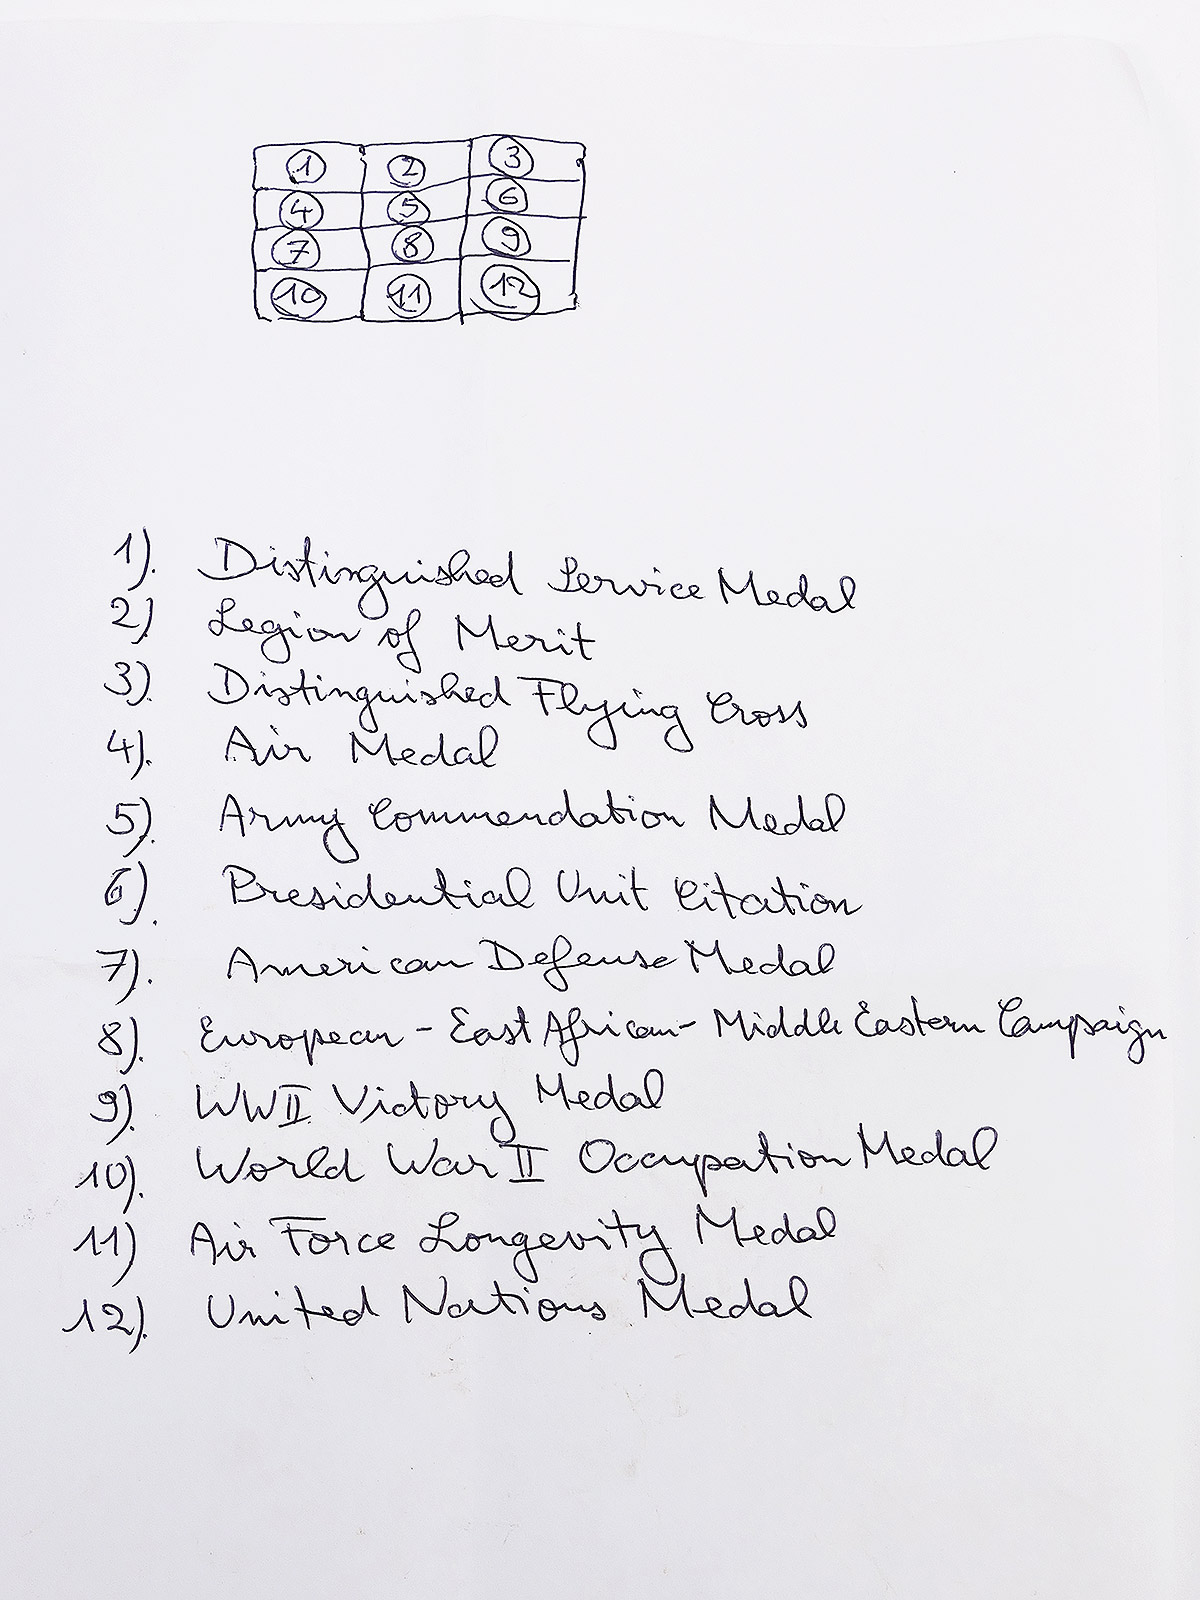 1 2 3
4 5 6
7 8 9
10 11 12
1). Distinguished Service Medal
2) Legion of Merit
3). Distinguished Flying Cross
4). Air Medal
5). Army Commendation Medal
6). Presidential Unit Citation
7). American Defense Medal
8). European - East African - Middle Eastern Campaign
9). WWII Victory Medal
10). World War II Occupation Medal
11) Air Force Longevity Medal
12). United Nations Medal